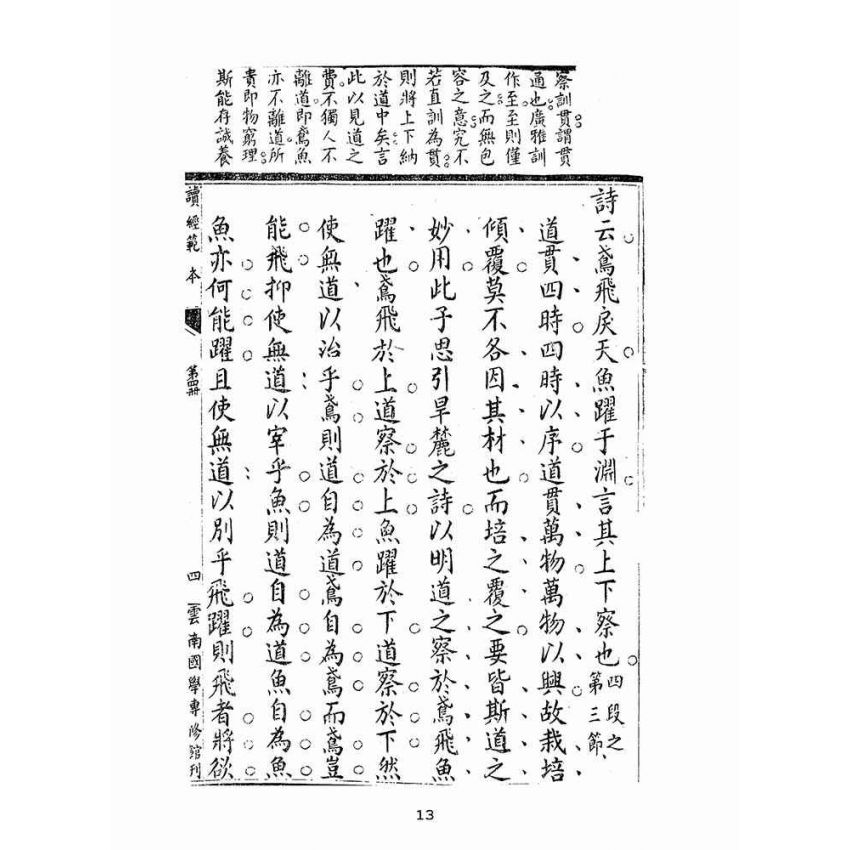 察訓貫謂貫
通也廣雅訓
作至至則僅
及之而無包
容之意究不
若直訓為貫
則將上下納
於道中矣言
此以見道之
費不獨人不
離道即鳶魚
亦不離道所
貴即物窮理
斯能存誠養
詩云鳶飛戾天魚躍于淵言其上下察也四段之第三節
道貫四時四時以序道貫萬物萬物以興故栽培
傾覆莫不各因其材也而培之覆之要皆斯道之
妙用此子思引旱麓之詩以明道之察於鳶飛魚
躍也鳶飛於上道察於上魚躍於下道察於下然
使無道以治乎鳶則道自為道鳶自為鳶而鳶豈
能飛抑使無道以宰乎魚則道自為道魚自為魚
魚亦何能躍且使無道以別乎飛躍則飛者將欲
讀經範本 第四冊 四 雲南國學專修館刊
13